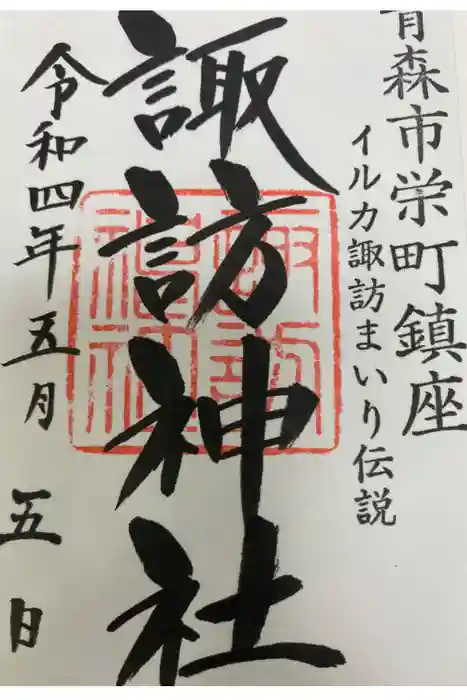 青森市栄町鎮座
イルカ諏訪まいり伝説
諏訪神社
令和四年五月五日